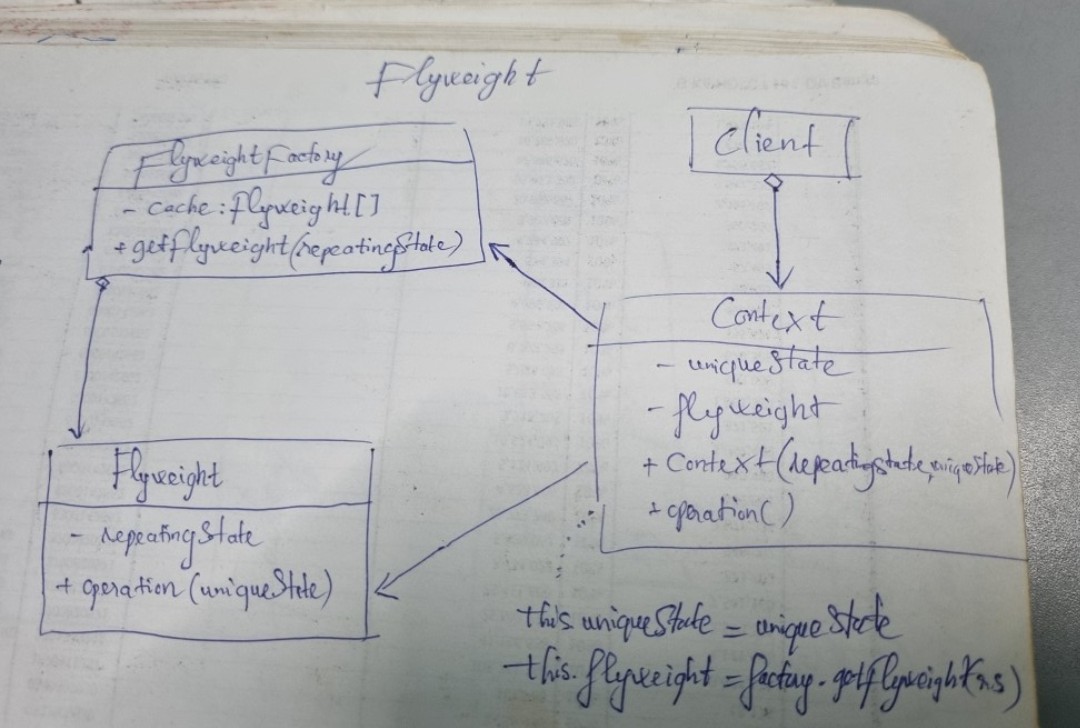 Flyweight
FlyweightFactory
- cache: flyweight[]
+ getflyweight(repeatingState)
Client
Context
- uniqueState
- flyweight
+ Context(repeatingstate, uniqueState)
+ operation()
Flyweight
- repeatingState
+ operation(uniqueState)
this.uniqueState = uniqueState
this.flyweight = factory.getflyweight(rs)